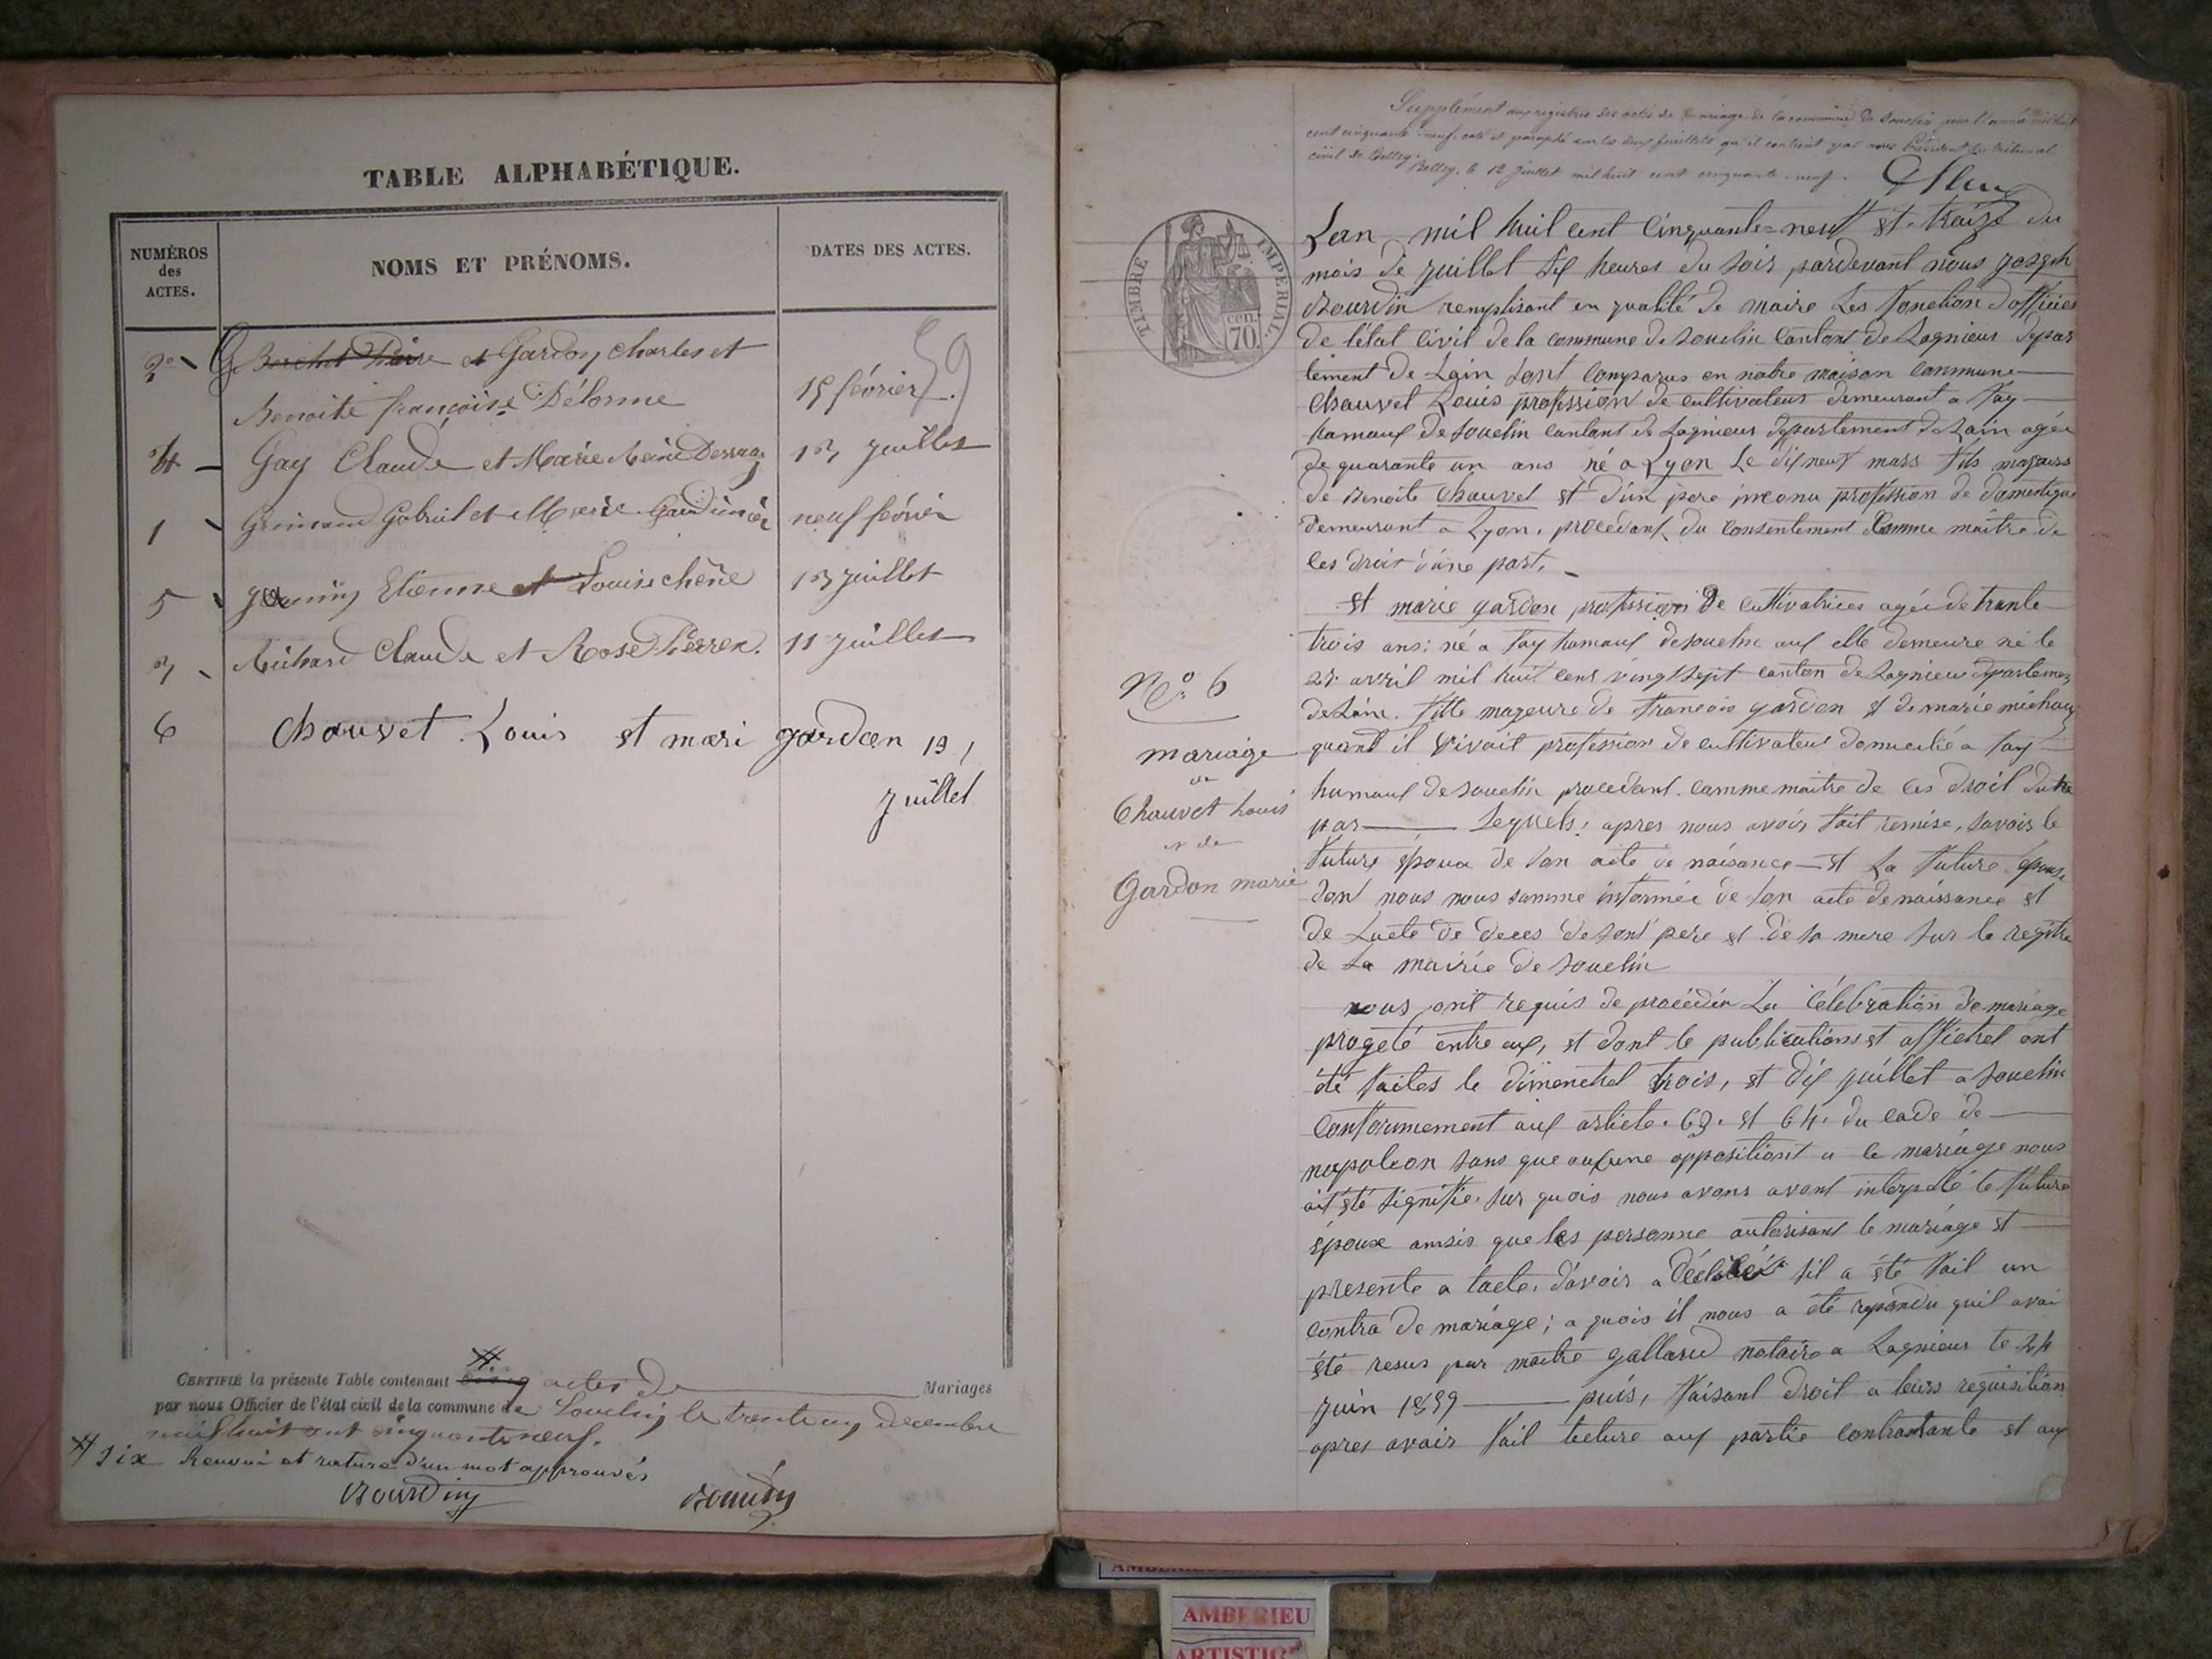 TABLE ALPHABÉTIQUE.
NUMÉROS
des
ACTES.
NOMS ET PRÉNOMS.
DATES DES ACTES.
2 Berchet Pierre et Gardon Charles et
Benoite françoise Délorme 15 février
59
4 Gay Claude et Marie 13 juillet
1 Grimand Gabriel et Marie neuf février
5 Etienne et Louise chêne 13 juillet
3 Richard Claude et Rose Perren. 11 juillet
6 chauvet Louis et mari gardon 13
juillet
CERTIFIÉ la présente Table contenant cinq actes de Mariages
par nous Officier de l'état civil de la commune de Souclin le trente un decembre
mil huit cent cinquante neuf.
six Renvoi et rature d'un mot approuvés
Bourdin Bourdin
Supplément aux registres des actes de mariage de la commune de Souclin pour l'année mil huit
cent cinquante-neuf, coté et paraphé sur les deux feuillets qu'il contient par nous Président du tribunal
civil de Belley.
Belley, le 12 juillet mil huit cent cinquante-neuf.
TIMBRE IMPÉRIAL.
cen. 70
Lan mil huil cent cinquante=neuf et traize du
mois de juillet dix heures du soir pardevant nous joseph
Bourdin remplisant en qualité de maire les fonction d'officier
de létat civil de la commune de souclin canton de Lagnieu depar
tement de Lain sont comparus en notre maison commune
chauvet Louis profession de cultivateur demeurant a fay
hamaux de souclin canton de Lagnieu département de Lain agée
de quarante un ans né a Lyon Le dix neuf mars fils majeurs
de Benoite chauvet et d'un pere inconu profession de domestique
demeurant a Lyon, procédant du consentement comme maître de
ces droit d'une part.
et marie gardon profession de cultivatrices agée de trante
trois ans; né a fay hamaux de souclin aux elle demeure né le
avril mil huit cens vingt sept canton de Lagnieu département
de Lain. fille mageure de francois gardon et de marie michaux
quand il vivait profession de cultivateur domicilié a fay
hamaux de souclin procedant comme maitre de ces droil dutre
par Lequels; apres nous avoir fait remise, savoir le
future époux de son acte de naisance et La future épouse
dont nous nous somme informée de son acte de naissance et
de Lacte de deces de sont pere et de sa mere sur le regitre
de La mairie de souclin
N.º 6
mariage
de
Chauvet Louis
et de
Gardon marie
nous ont requis de procéder La célébration de mariage
progeté entre eux, et dont le publications et affichet ont
été faites le dimenchet trois, et dix juillet a souclin
confornmement aux article. 63. et 64. du code de
napoleon sans que aucune oppositiont a ce mariage nous
ait été signifie. sur quois nous avons avont interpellé le future
époux ainsis que les personne autorisant le mariage et
presente a lacte. davoir a déclaré sil a été fait un
contra de mariage; a quois il nous a été repondu quil avai
été resus par maitre gallard notaire a Lagnieux le 24
juin 1859 puis, faisant droit a leurs requisition
apres avair fail lecture aux partie contractante et aux
AMBERIEU
ARTISTIC